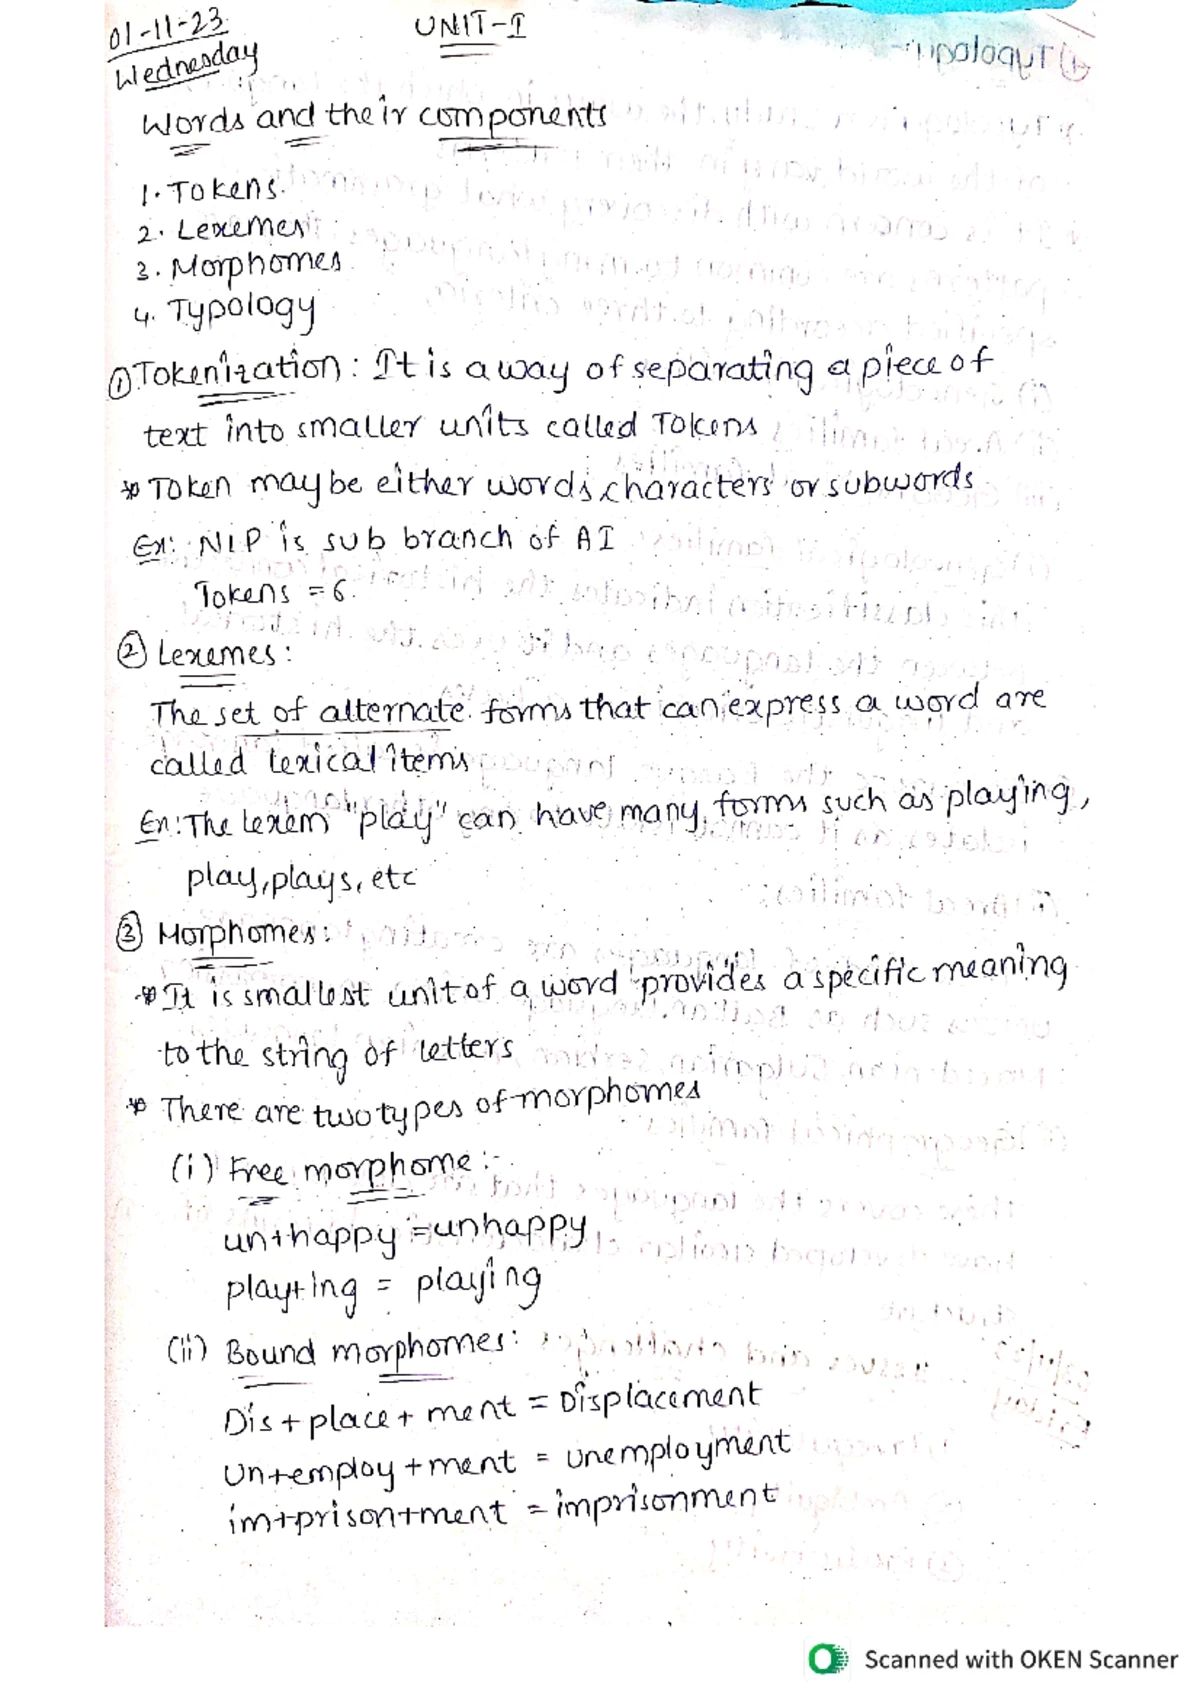 01-11-23
Wednesday
UNIT-I
Words and their components
1. Tokens.
2. Lexemes
3. Morphomes
4. Typology
① Tokenization: It is a way of separating a piece of
text into smaller units called Tokens
* Token maybe either words, characters or subwords
Ex: NLP is sub branch of AI
Tokens = 6.
② Lexemes:
The set of alternate forms that can express a word are
called lexical items
Ex: The lexem "play" can have many forms such as playing,
play, plays, etc
③ Morphomes:
* It is smallest unit of a word provides a specific meaning
to the string of letters
* There are two types of morphomes
(i) Free morphome:-
un+happy = unhappy
play+ing = playing
(ii) Bound morphomes:
Dis + place + ment = Displacement
Un+employ+ment = unemployment
im+prison+ment = imprisonment
Scanned with OKEN Scanner